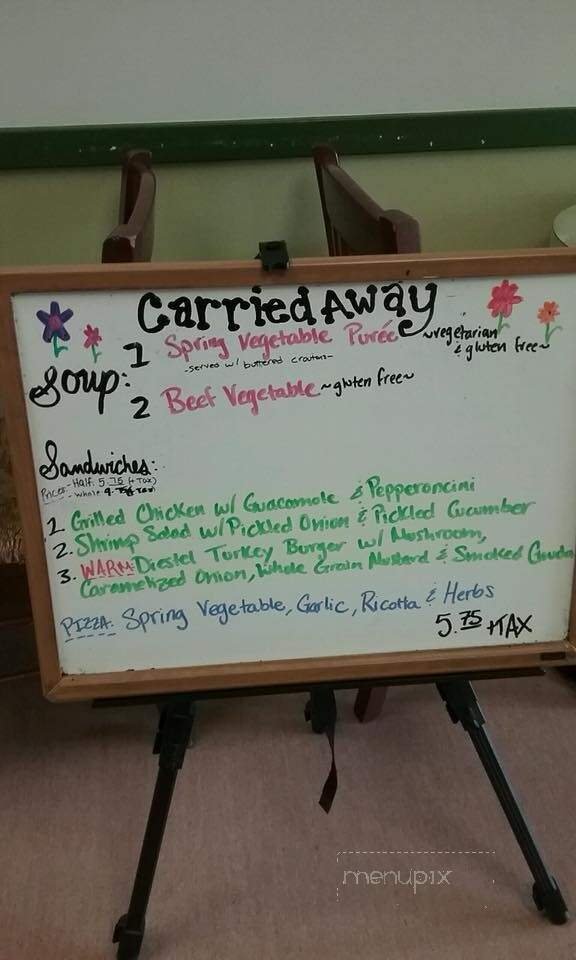 Carried Away
Soup: 1 Spring Vegetable Purée ~vegetarian
& gluten free~
-served w/ buttered croutons-
2 Beef Vegetable ~gluten free~
Sandwiches:
Prices - Half: 5.75 (+Tax)
- Whole
1. Grilled Chicken w/ Guacamole & Pepperoncini
2. Shrimp Salad w/ Pickled Onion & Pickled Cucumber
3. WARM: Diestel Turkey Burger w/ Mushroom,
Caramelized Onion, Whole Grain Mustard & Smoked Gouda
PIZZA: Spring Vegetable, Garlic, Ricotta & Herbs
5.75 +TAX
menupix